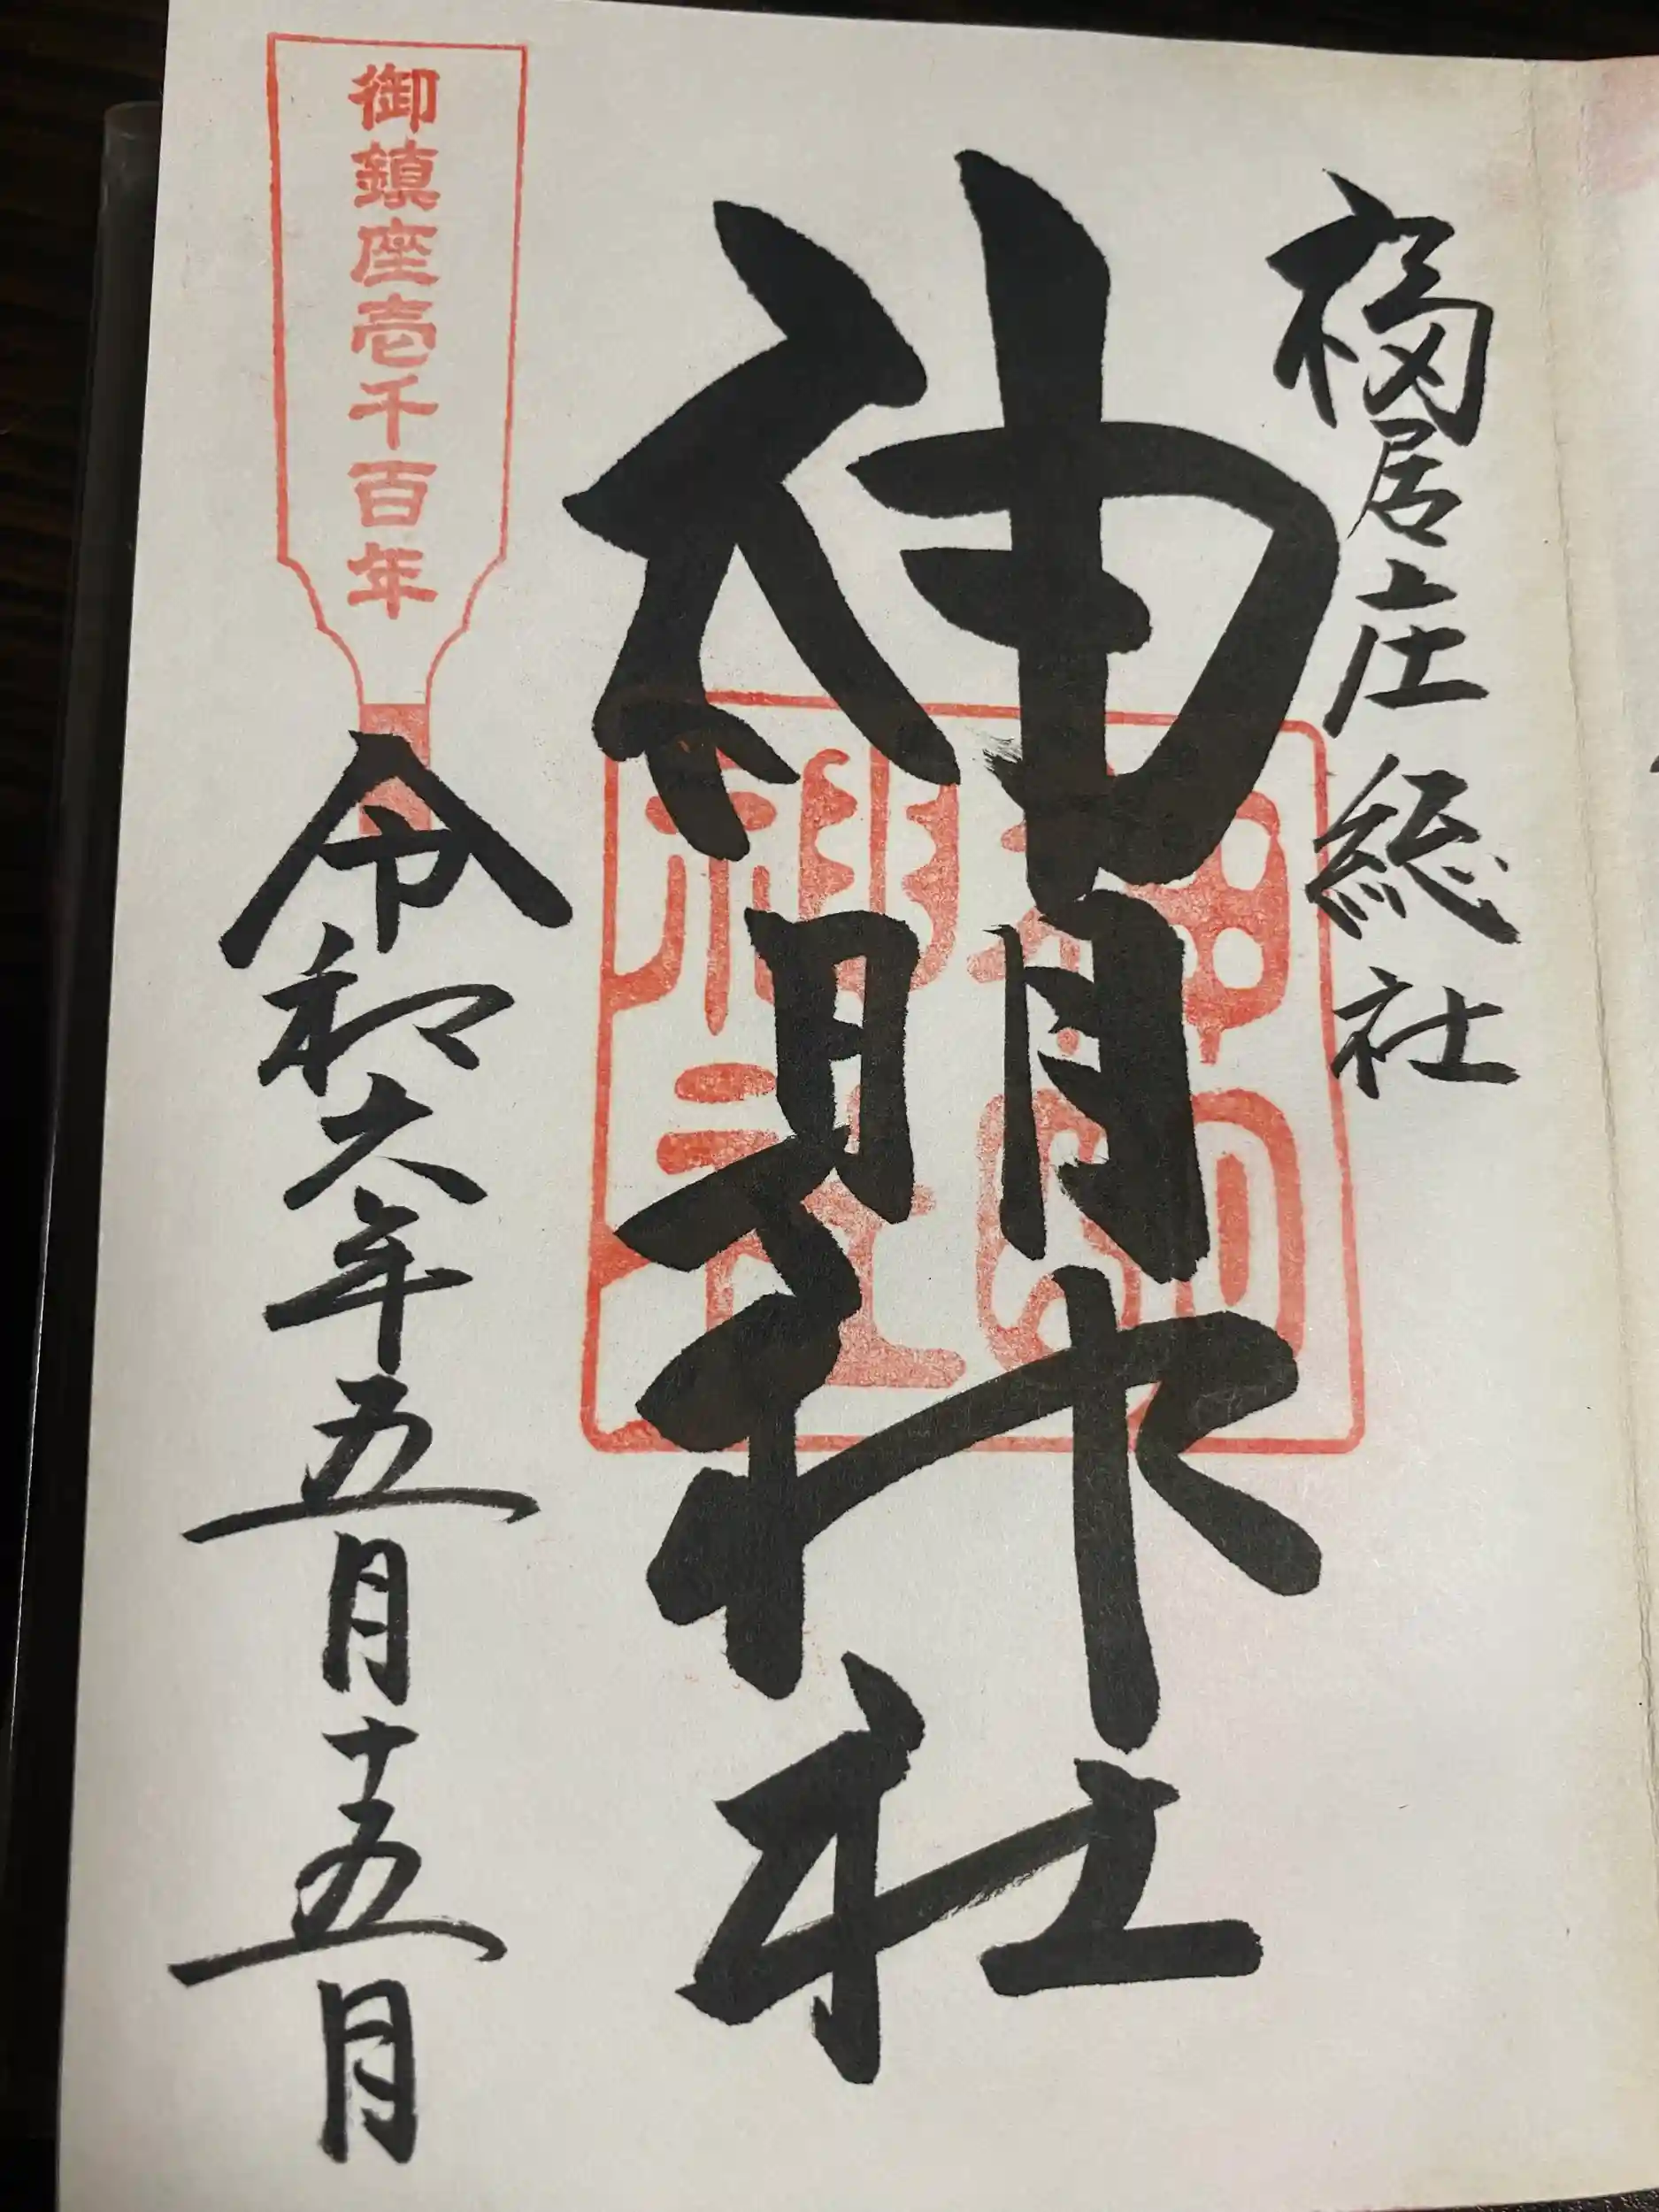 福居庄総社
神明神社
御鎮座壱千百年
令和六年五月十五日
神明神社